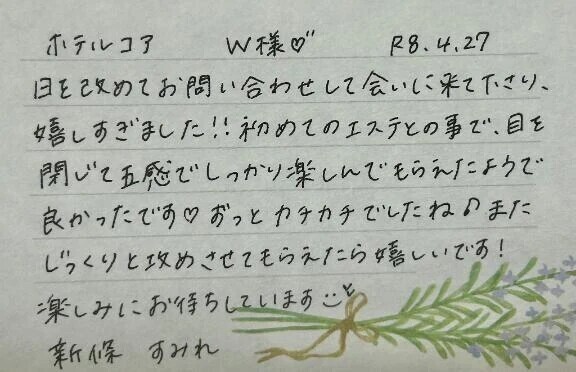 ホテルコア W様♡ R8.4.27
日を改めてお問い合わせして会いに来て下さり、
嬉しすぎました!! 初めてのエステとの事で、目を
閉じて五感でしっかり楽しんでもらえたようで
良かったです♡ ずっとカチカチでしたね♪ また
じっくりと攻めさせてもらえたら嬉しいです!
楽しみにお待ちしています
新條 すみれ